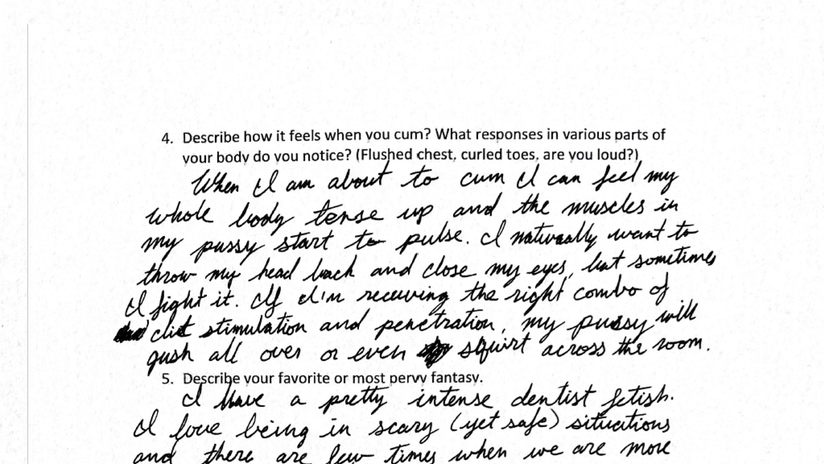 4. Describe how it feels when you cum? What responses in various parts of
your body do you notice? (Flushed chest, curled toes, are you loud?)
When I am about to cum I can feel my
whole body tense up and the muscles in
my pussy start to pulse. I naturally want to
throw my head back and close my eyes, but sometimes
I fight it. If I'm receiving the right combo of
clit stimulation and penetration, my pussy will
gush all over or even squirt across the room.
5. Describe your favorite or most pervy fantasy.
I have a pretty intense dentist fetish.
I love being in scary (yet safe) situations
and there are few times when we are more